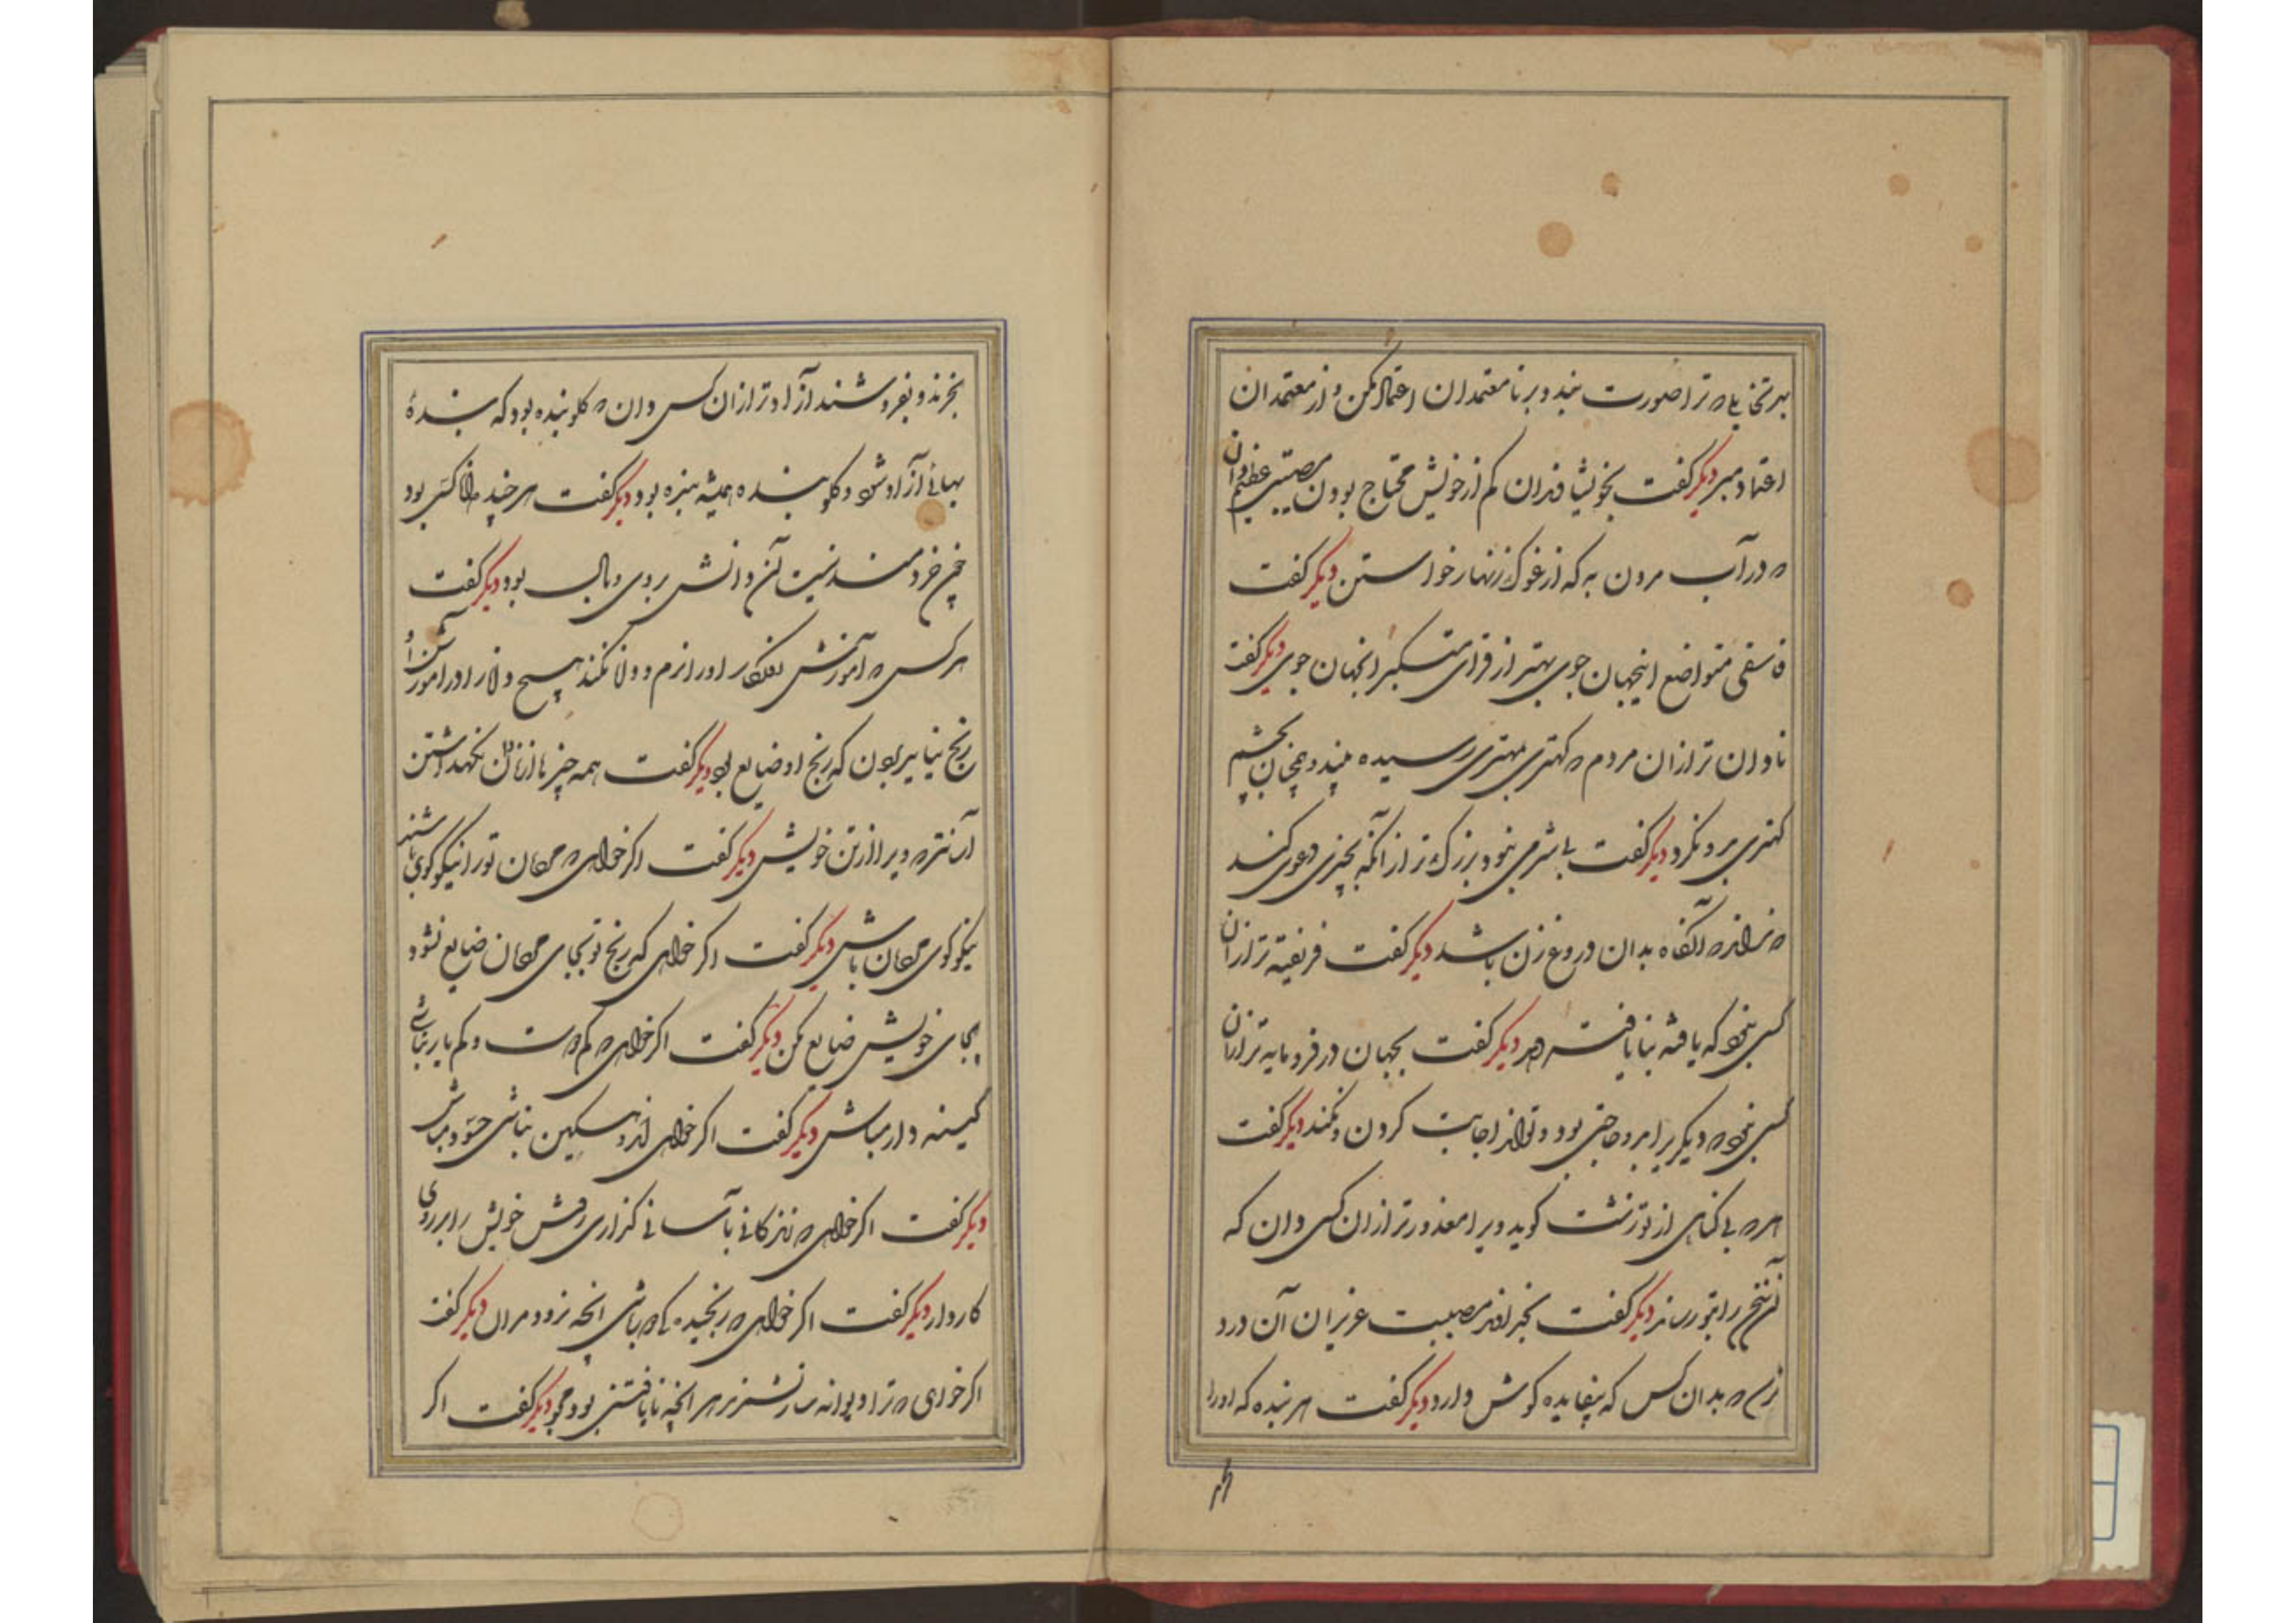 ترا صورت بندد و بر نامعتمدان اعتماد مکن و از معتمدان
اعتماد مبر دیگر گفت بخویشاوندان کم از خویش محتاج بودن مصیبتی عظیم دان
که در آب مردن به که از غوک زنهار خواستن دیگر گفت
فاسقی متواضع اینجهان جوی بهتر از قرای متکبر انجهان جوی دیگر گفت
نادان تر ازان مردم که کهتری بمهتری رسیده بیند و همچنان بچشم
کهتری برو نگرد دیگر گفت بی شرمی نبود بزرک تر از آنکه بچیزی دعوی کند
که نداند که آنگاه بدان دروغ زن باشد دیگر گفت فریفته تر ازان
کسی نبود که یافته بنا یافته دهد دیگر گفت بجهان در فرومایه تر ازان
کسی نبود که دیگری را بدو حاجتی بود و تواند اجابت کردن و نکند دیگر گفت
هر که بی گناهی از تو زشت گوید ویرا معذورتر ازان کسی دان که
آن سخن را بتو رساند دیگر گفت بخداوند مصیبت عزیزان آن درد
که بدان کس که بیفایده گوش دارد دیگر گفت هر بنده که اورا
بخرند و بفروشند آزادتر ازان کس دان که گلو بنده بود که بندهٔ
بهائی آزاد شود و گلو بنده همیشه بنده بود دیگر گفت هر چند دانا کسی بود
چون خردمند نیست آن دانش بروی وبال بود دیگر گفت
هر کس که آموزش روزگار اورا نرم و دانا نکند هیچ دانا را در آموزش او
رنج نباید بردن که رنج او ضایع بود دیگر گفت همه چیز با از نادان نگهداشتن
آسانتر که ویرا از تن خویش دیگر گفت اکر خواهی که مردمان تورا نیکو گوی باشند
نیکو گوی مردمان باش دیگر گفت اکر خواهی که رنج تو بجای مردمان ضایع نشود
بجای خویش ضایع مکن دیگر گفت اکر خواهی که کم دوست و کم یار نباشی
کینه دار مباش دیگر گفت اکر خواهی اندوهگین نباشی حسود مباش
دیگر گفت اکر خواهی که زندگانی بآسانی گذاری روش خویش را بر روی
کار دار دیگر گفت اکر خواهی که رنجیده نباشی انچه نرود مران دیگر گفت
اکر خواهی که ترا دیوانه سار نشمرند هر انچه نایافتنی بود مجو دیگر گفت اکر